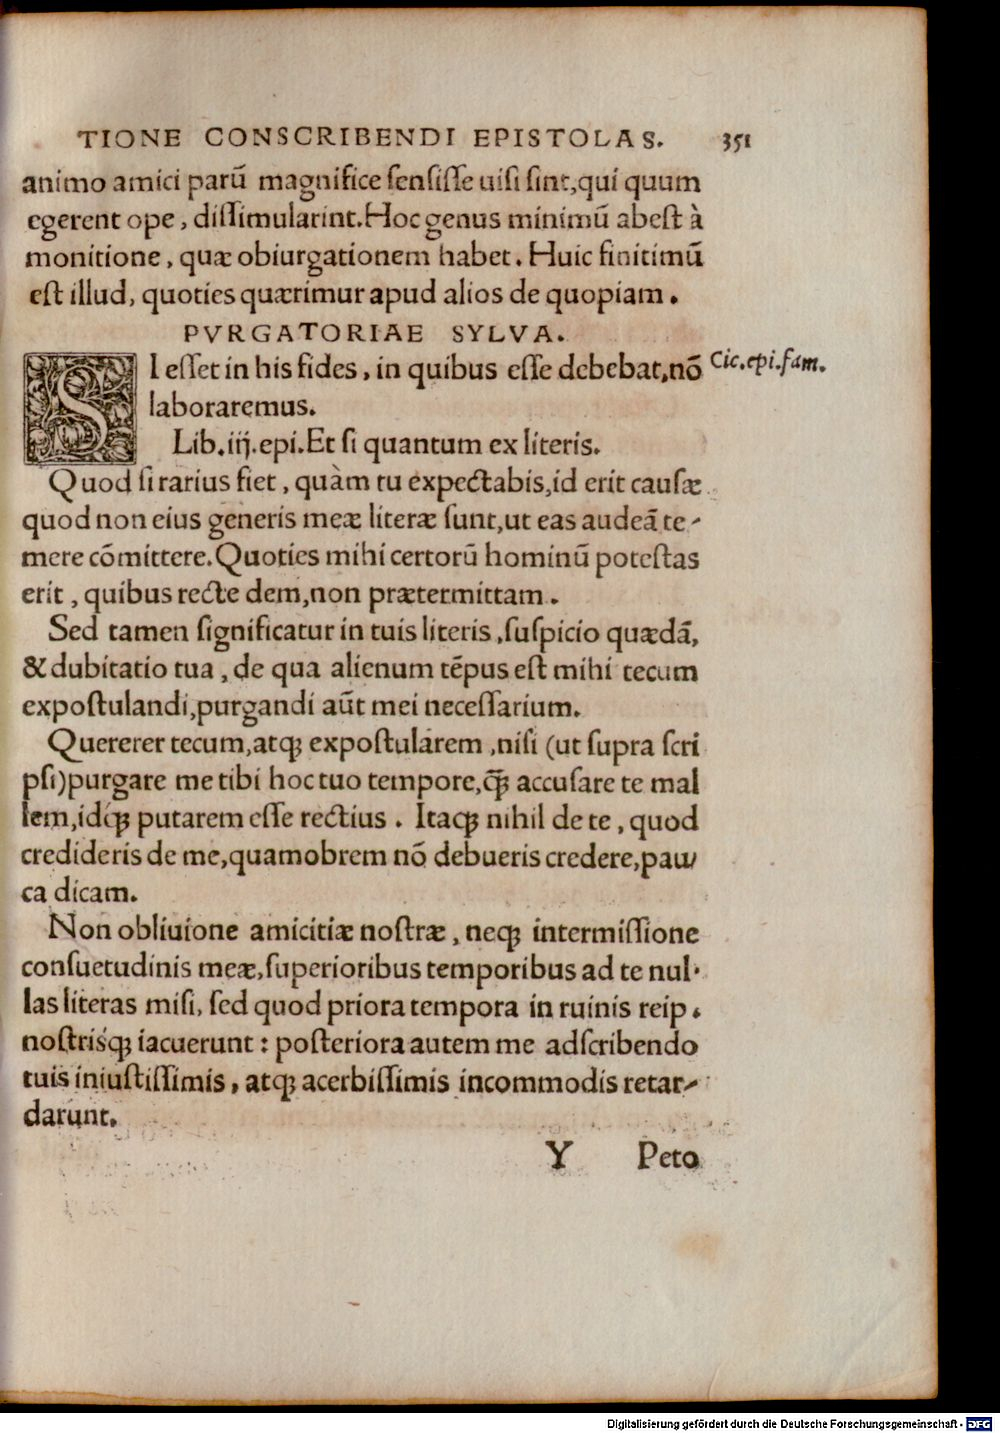 TIONE CONSCRIBENDI EPISTOLAS. 351
animo amici parū magnifice ſenſiſſe uiſi ſint,qui quum
egerent ope, diſſimularint.Hoc genus minimū abeſt à
monitione, quæ obiurgationem habet. Huic finitimū
eſt illud, quoties quærimur apud alios de quopiam.
PVRGATORIAE SYLVA.
SI eſſet in his fides, in quibus eſſe debebat,nō Cic.epi.fam.
laboraremus.
Lib.iij.epi.Et ſi quantum ex literis.
Quod ſi rarius fiet, quàm tu expectabis,id erit cauſæ
quod non eius generis meæ literæ ſunt,ut eas audeā te-
mere cōmittere.Quoties mihi certorū hominū poteſtas
erit, quibus recte dem,non prætermittam.
Sed tamen ſignificatur in tuis literis,ſuſpicio quædā,
& dubitatio tua, de qua alienum tēpus eſt mihi tecum
expoſtulandi,purgandi aūt mei neceſſarium.
Quererer tecum,atq; expoſtularem,niſi (ut ſupra ſcri
pſi)purgare me tibi hoc tuo tempore,q̄; accuſare te mal
lem,idq́; putarem eſſe rectius. Itaq; nihil de te, quod
credideris de me,quamobrem nō debueris credere,pau-
ca dicam.
Non obliuione amicitiæ noſtræ, neq; intermiſſione
conſuetudinis meæ,ſuperioribus temporibus ad te nul-
las literas miſi, ſed quod priora tempora in ruinis reip.
noſtrisq́; iacuerunt: poſteriora autem me adſcribendo
tuis iniuſtiſſimis, atq; acerbiſſimis incommodis retar-
darunt.
Y Peto
Digitalisierung gefördert durch die Deutsche Forschungsgemeinschaft - DFG